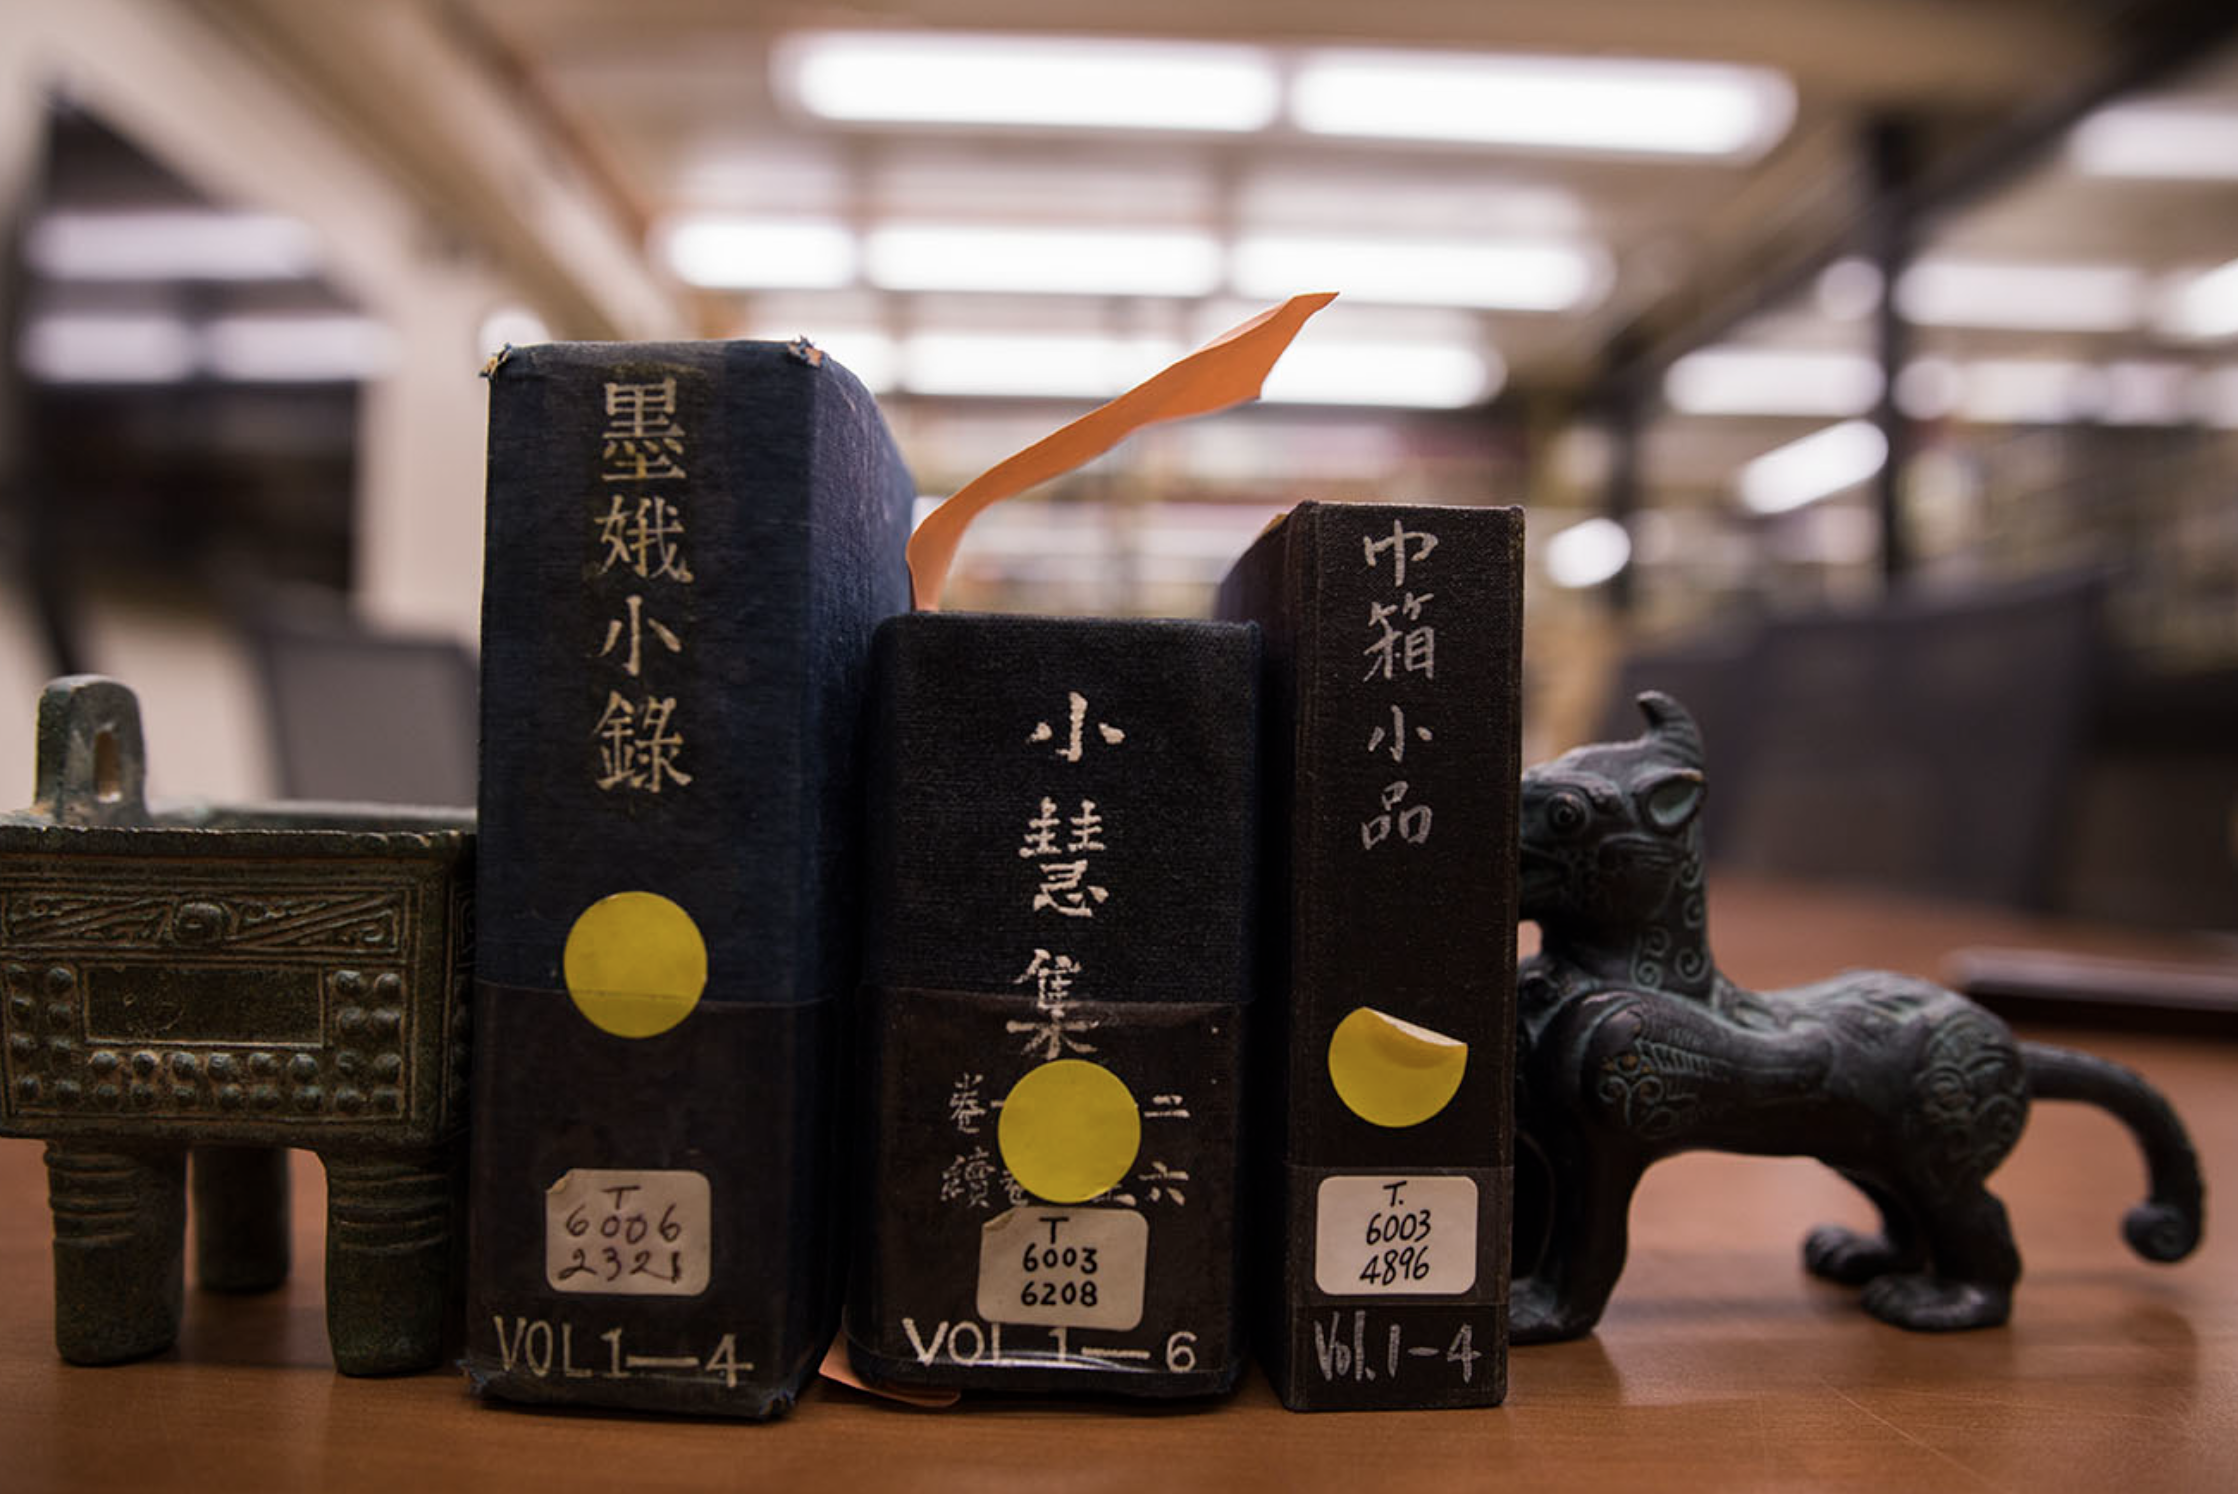 墨娥小錄
T
6006
2321
VOL 1—4
小慧集
卷一 二
續卷 六
T
6003
6208
VOL 1—6
巾箱小品
T.
6003
4896
Vol. 1-4